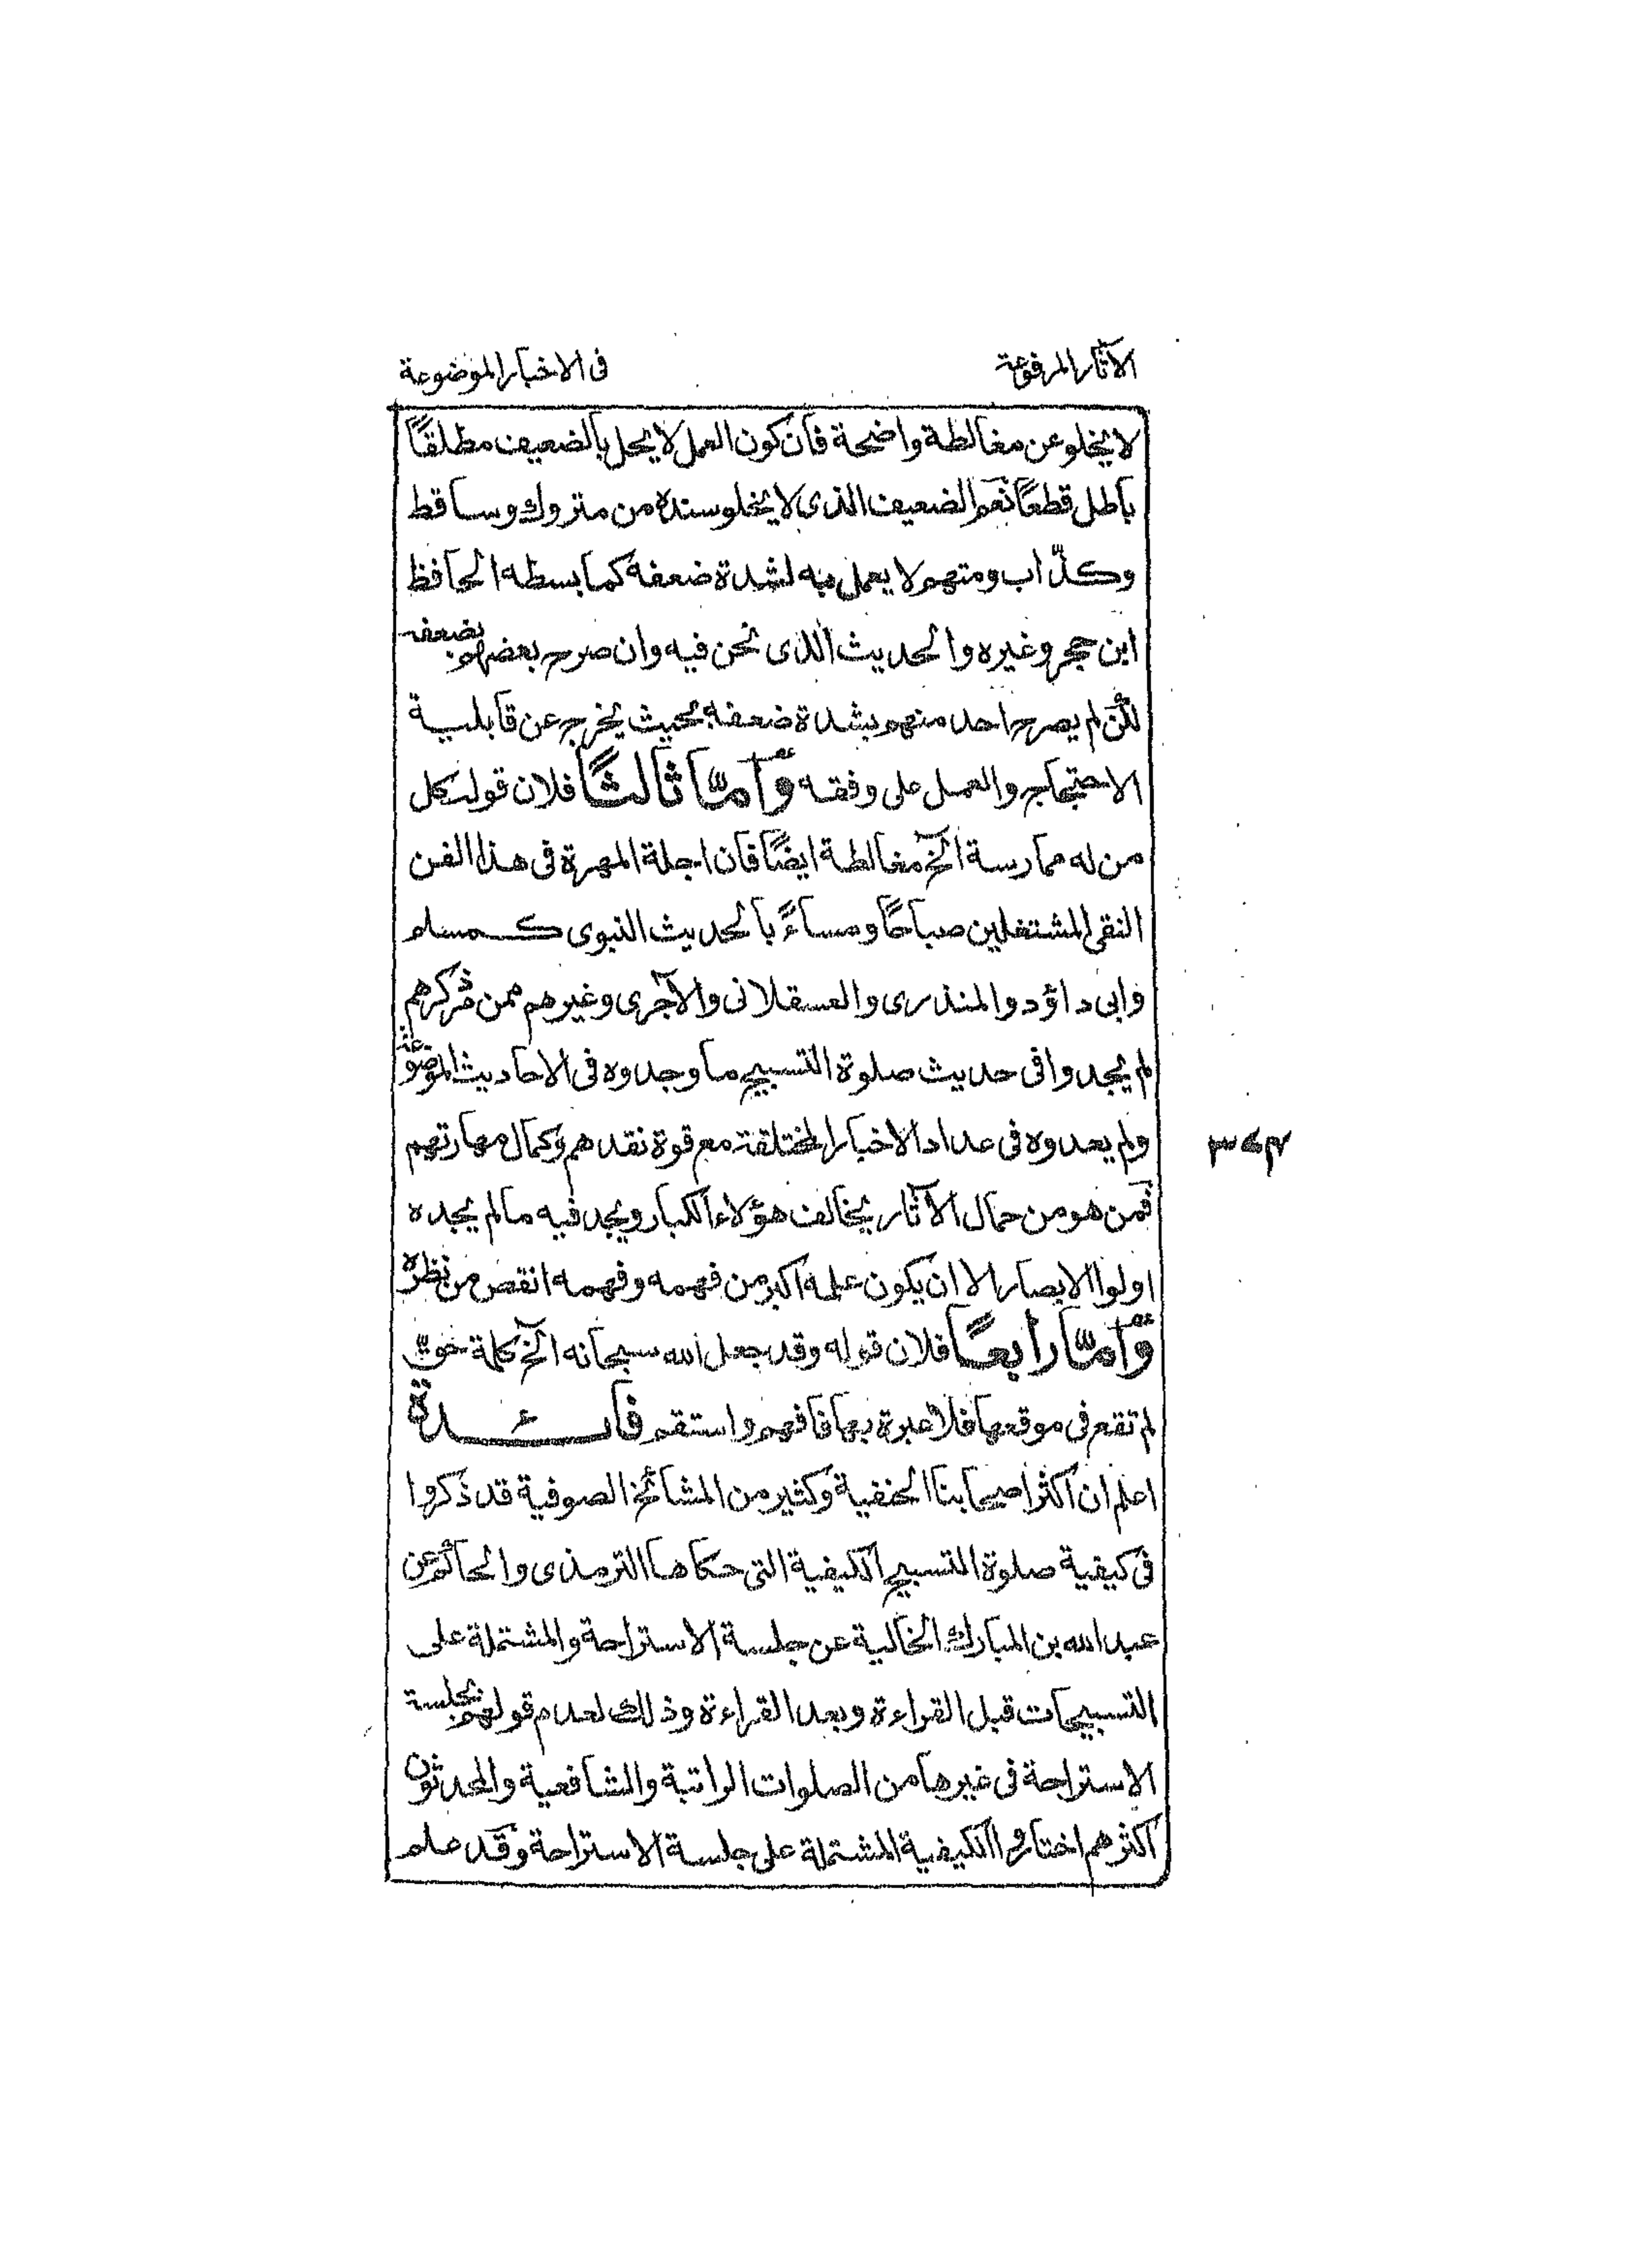 الآثار المرفوعة
فى الاخبار الموضوعة
لا يخلو عن مغالطة واضحة فان كون العمل لا يحل بالضعيف مطلقاً
باطل قطعاً نعم الضعيف الذى لا يخلو سنده من متروك وساقط
وكذّاب ومتهم لا يعمل به لشدة ضعفه كما بسطه الحافظ
ابن حجر وغيره والحديث الذى نحن فيه وان صرح بعضهم بضعفه
لكن لم يصرح احد منهم بشدة ضعفه بحيث يخرج عن قابلية
الاحتجاج والعمل على وفقه وَأمّا ثالثًا فلان قوله كل
من له ممارسة الخ مغالطة ايضًا فان اجلة المهرة فى هذا الفن
النقى المشتغلين صباحًا ومساءً بالحديث النبوى كمسلم
وابى داؤد والمنذرى والعسقلانى والآجرى وغيرهم ممن مر ذكرهم
لم يجدوا فى حديث صلوة التسبيح ما وجدوه فى الاحاديث الموضوعة
ولم يعدوه فى عداد الاخبار المختلقة مع قوة نقدهم وكمال مهارتهم
فمن هو من حمال الآثار يخالف هؤلاء الكبار ويجد فيه ما لم يجده
اولوا الابصار الا ان يكون علمه اكبر من فهمه وفهمه انقص من نظره
وَأمّا رابعًا فلان قوله وقد جعل الله سبحانه الخ كلمة حق
لم تقع فى موقعها فلا عبرة بها فافهم واستقم فائدة
اعلم ان اكثر اصحابنا الحنفية وكثير من المشائخ الصوفية قد ذكروا
فى كيفية صلوة التسبيح الكيفية التى حكاها الترمذى والحاكم عن
عبد الله بن المبارك الخالية عن جلسة الاستراحة والمشتملة على
التسبيحات قبل القراءة وبعد القراءة وذلك لعدم قولهم بجلسة
الاستراحة فى غيرها من الصلوات الراتبة والشافعية والمحدثون
اكثرهم اختاروا الكيفية المشتملة على جلسة الاستراحة وقد علم